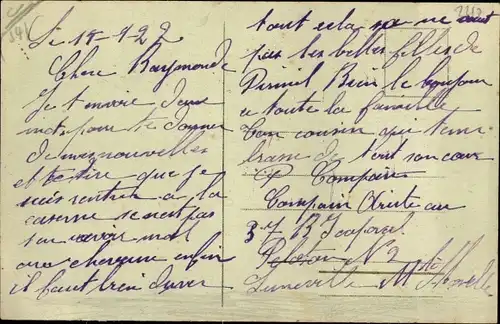 Le 14-1-22
Chere Raymonde
Je t envoie deux
mot pour te donner
de mes nouvelles
et te dire que je
suis rentrer a la
caserne se nest pas
sen avoir mal
au enfin
il faut bien
tout cela ne
pas les belles filles de
Bien le bonjour
a toute la famille
Ton cousin qui tem
brasse de tout son cœur
Compain
Compain au
37 R
Peloton N° 2
Luneville Mthe Moselle